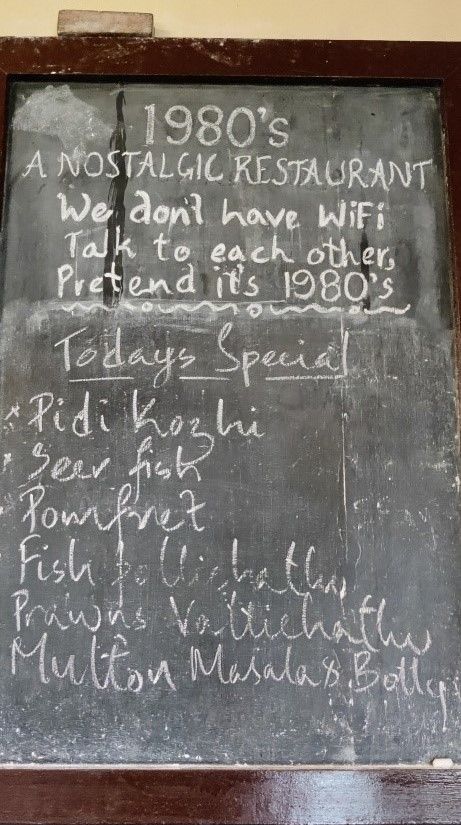 1980's
A NOSTALGIC RESTAURANT
We don't have WiFi
Talk to each other,
Pretend it's 1980's
Todays Special
x Pidi Kozhi
x Seer fish
Pomfret
Fish pollichathu
Prawns Vattichathu
Mutton Masala & Botty